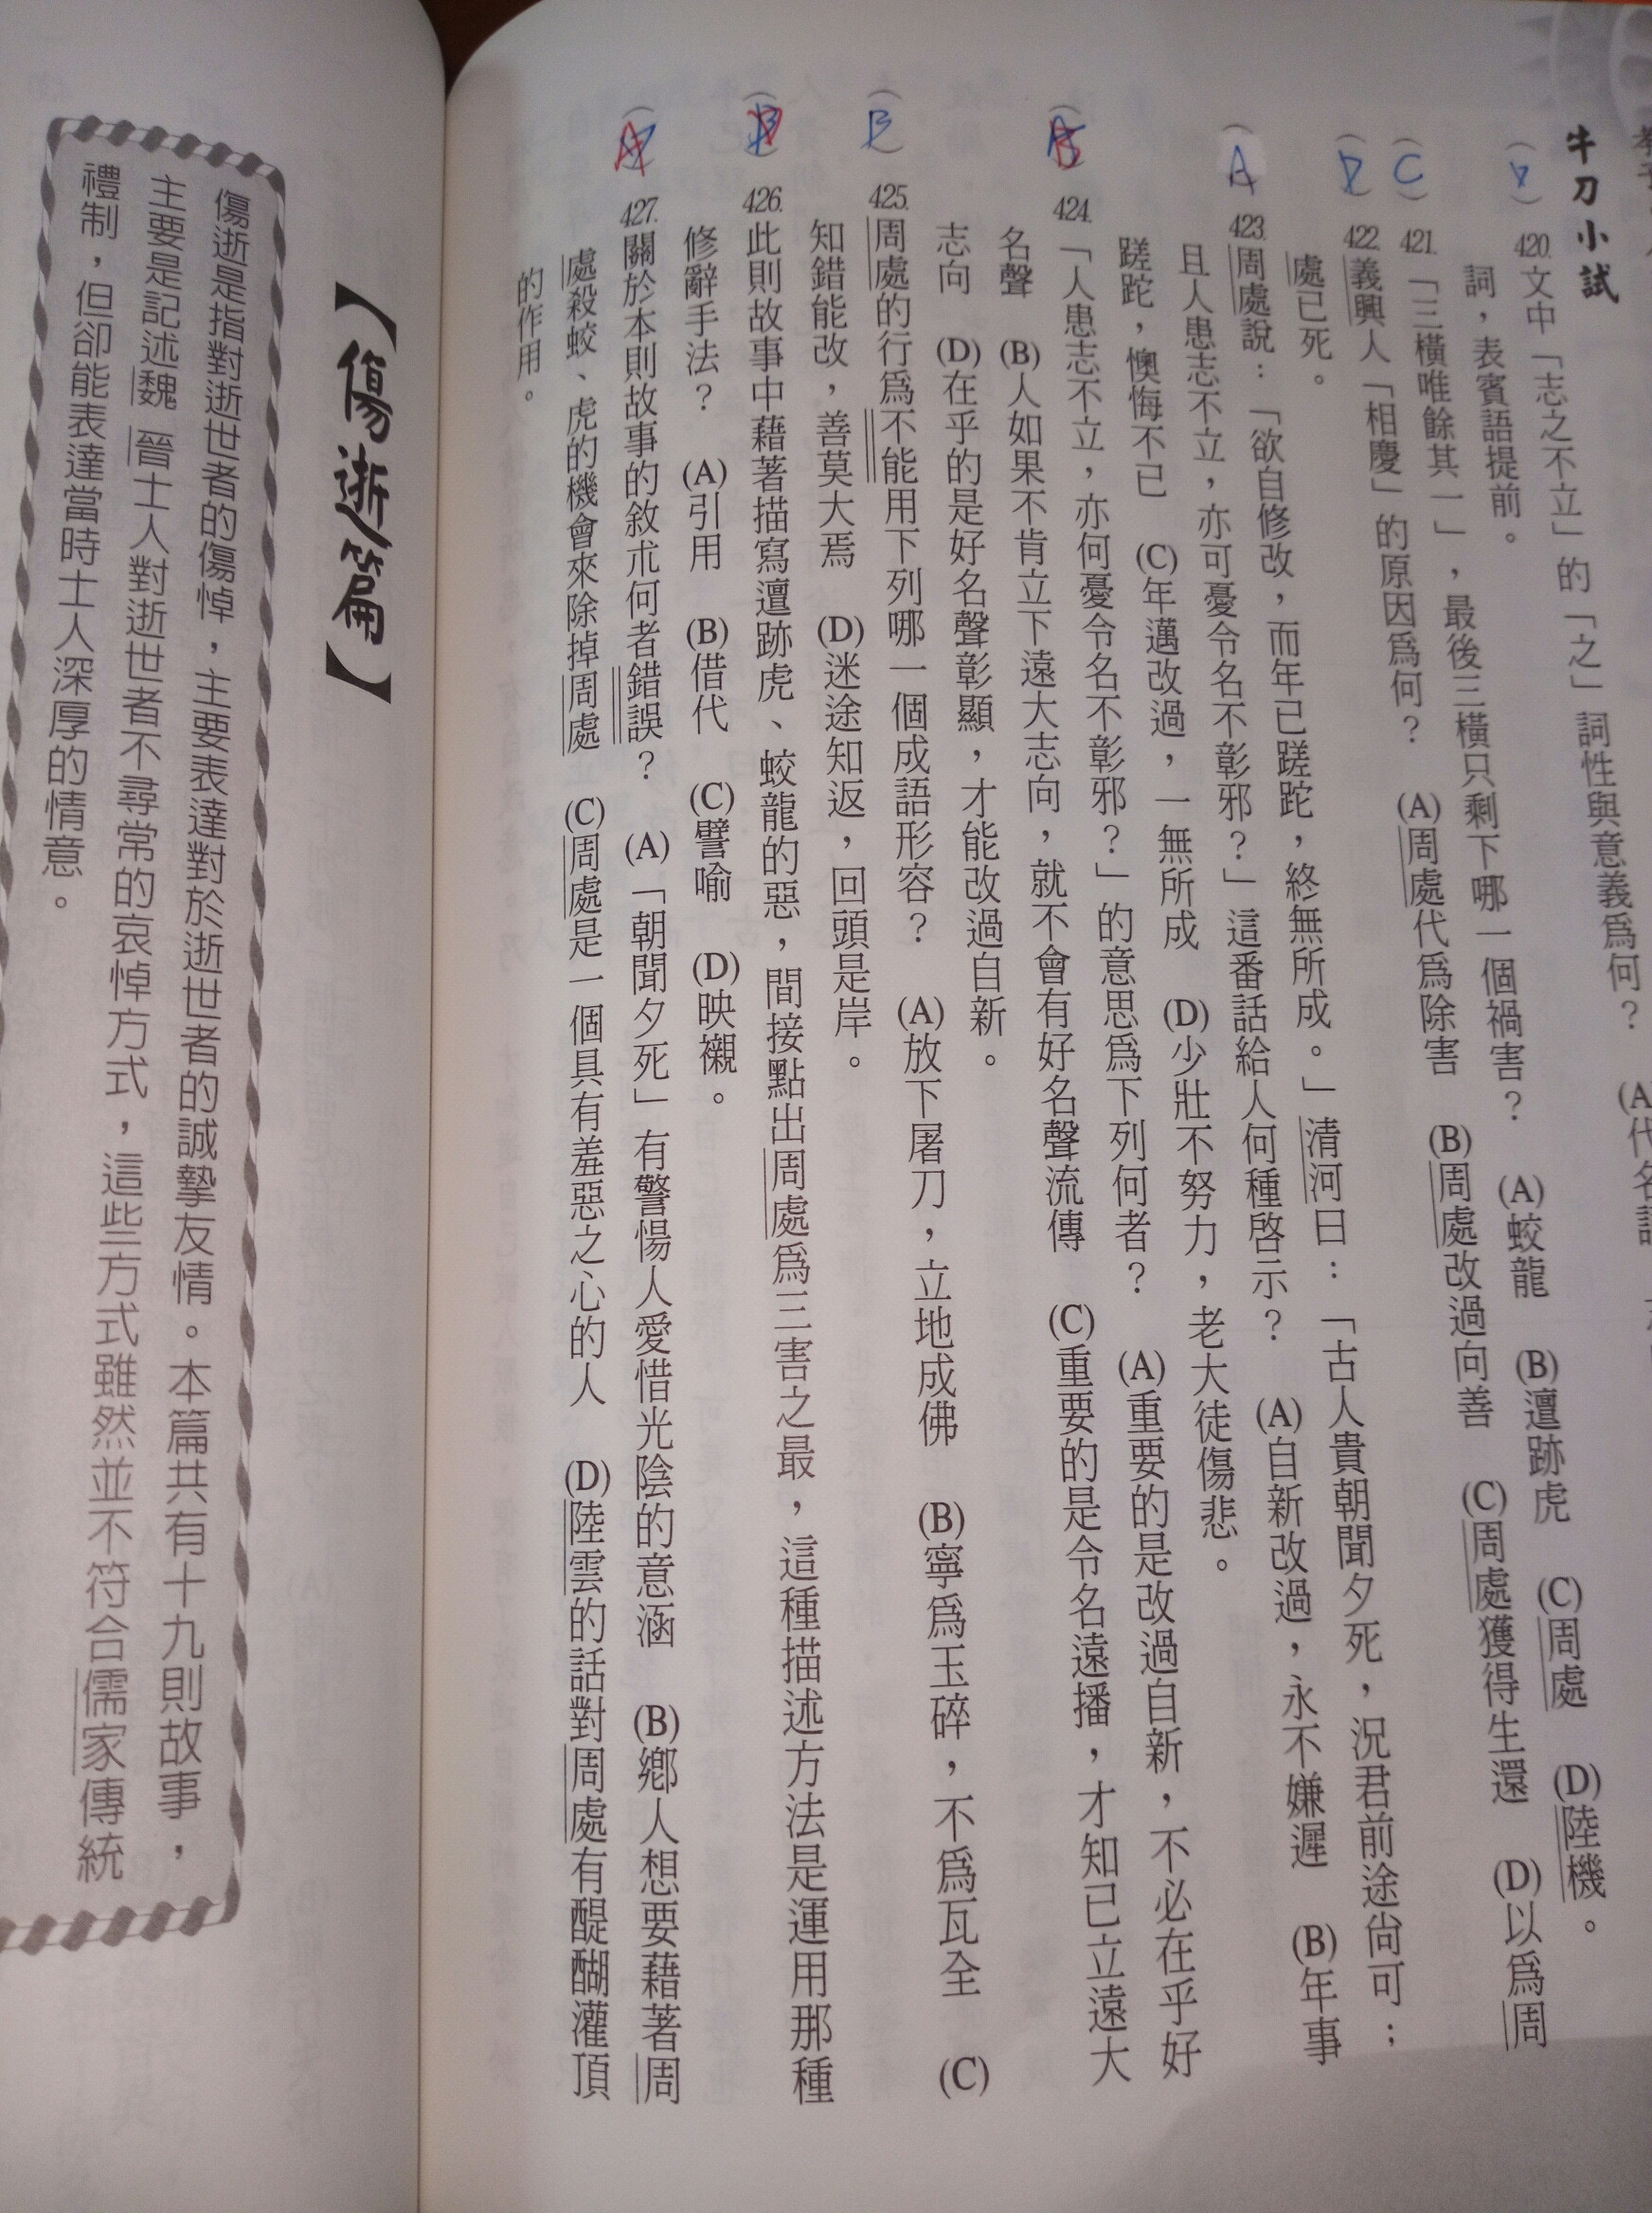 牛刀小試
(D) 420.文中「志之不立」的「之」詞性與意義為何？ (A)代名詞
詞，表賓語提前。
(C) 421.「三橫唯餘其一」，最後三橫只剩下哪一個禍害？ (A)蛟龍 (B)邅跡虎 (C)周處 (D)陸機。
(D) 422.義興人「相慶」的原因為何？ (A)周處代為除害 (B)周處改過向善 (C)周處獲得生還 (D)以為周
處已死。
(A) 423.周處說：「欲自修改，而年已蹉跎，終無所成。」清河曰：「古人貴朝聞夕死，況君前途尚可；
且人患志不立，亦可憂令名不彰邪？」這番話給人何種啟示？ (A)自新改過，永不嫌遲 (B)年事
蹉跎，懊悔不已 (C)年邁改過，一無所成 (D)少壯不努力，老大徒傷悲。
(B) 424.「人患志不立，亦何憂令名不彰邪？」的意思為下列何者？ (A)重要的是改過自新，不必在乎好
名聲 (B)人如果不肯立下遠大志向，就不會有好名聲流傳 (C)重要的是令名遠播，才知已立遠大
志向 (D)在乎的是好名聲彰顯，才能改過自新。
(B) 425.周處的行為不能用下列哪一個成語形容？ (A)放下屠刀，立地成佛 (B)寧為玉碎，不為瓦全 (C)
知錯能改，善莫大焉 (D)迷途知返，回頭是岸。
(D) 426.此則故事中藉著描寫邅跡虎、蛟龍的惡，間接點出周處為三害之最，這種描述方法是運用那種
修辭手法？ (A)引用 (B)借代 (C)譬喻 (D)映襯。
(A) 427.關於本則故事的敘朮何者錯誤？ (A)「朝聞夕死」有警愓人愛惜光陰的意涵 (B)鄉人想要藉著周
處殺蛟、虎的機會來除掉周處 (C)周處是一個具有羞惡之心的人 (D)陸雲的話對周處有醍醐灌頂
的作用。
【傷逝篇】
傷逝是指對逝世者的傷悼，主要表達對於逝世者的誠摯友情。本篇共有十九則故事，
主要是記述魏晉士人對逝世者不尋常的哀悼方式，這些方式雖然並不符合儒家傳統
禮制，但卻能表達當時士人深厚的情意。